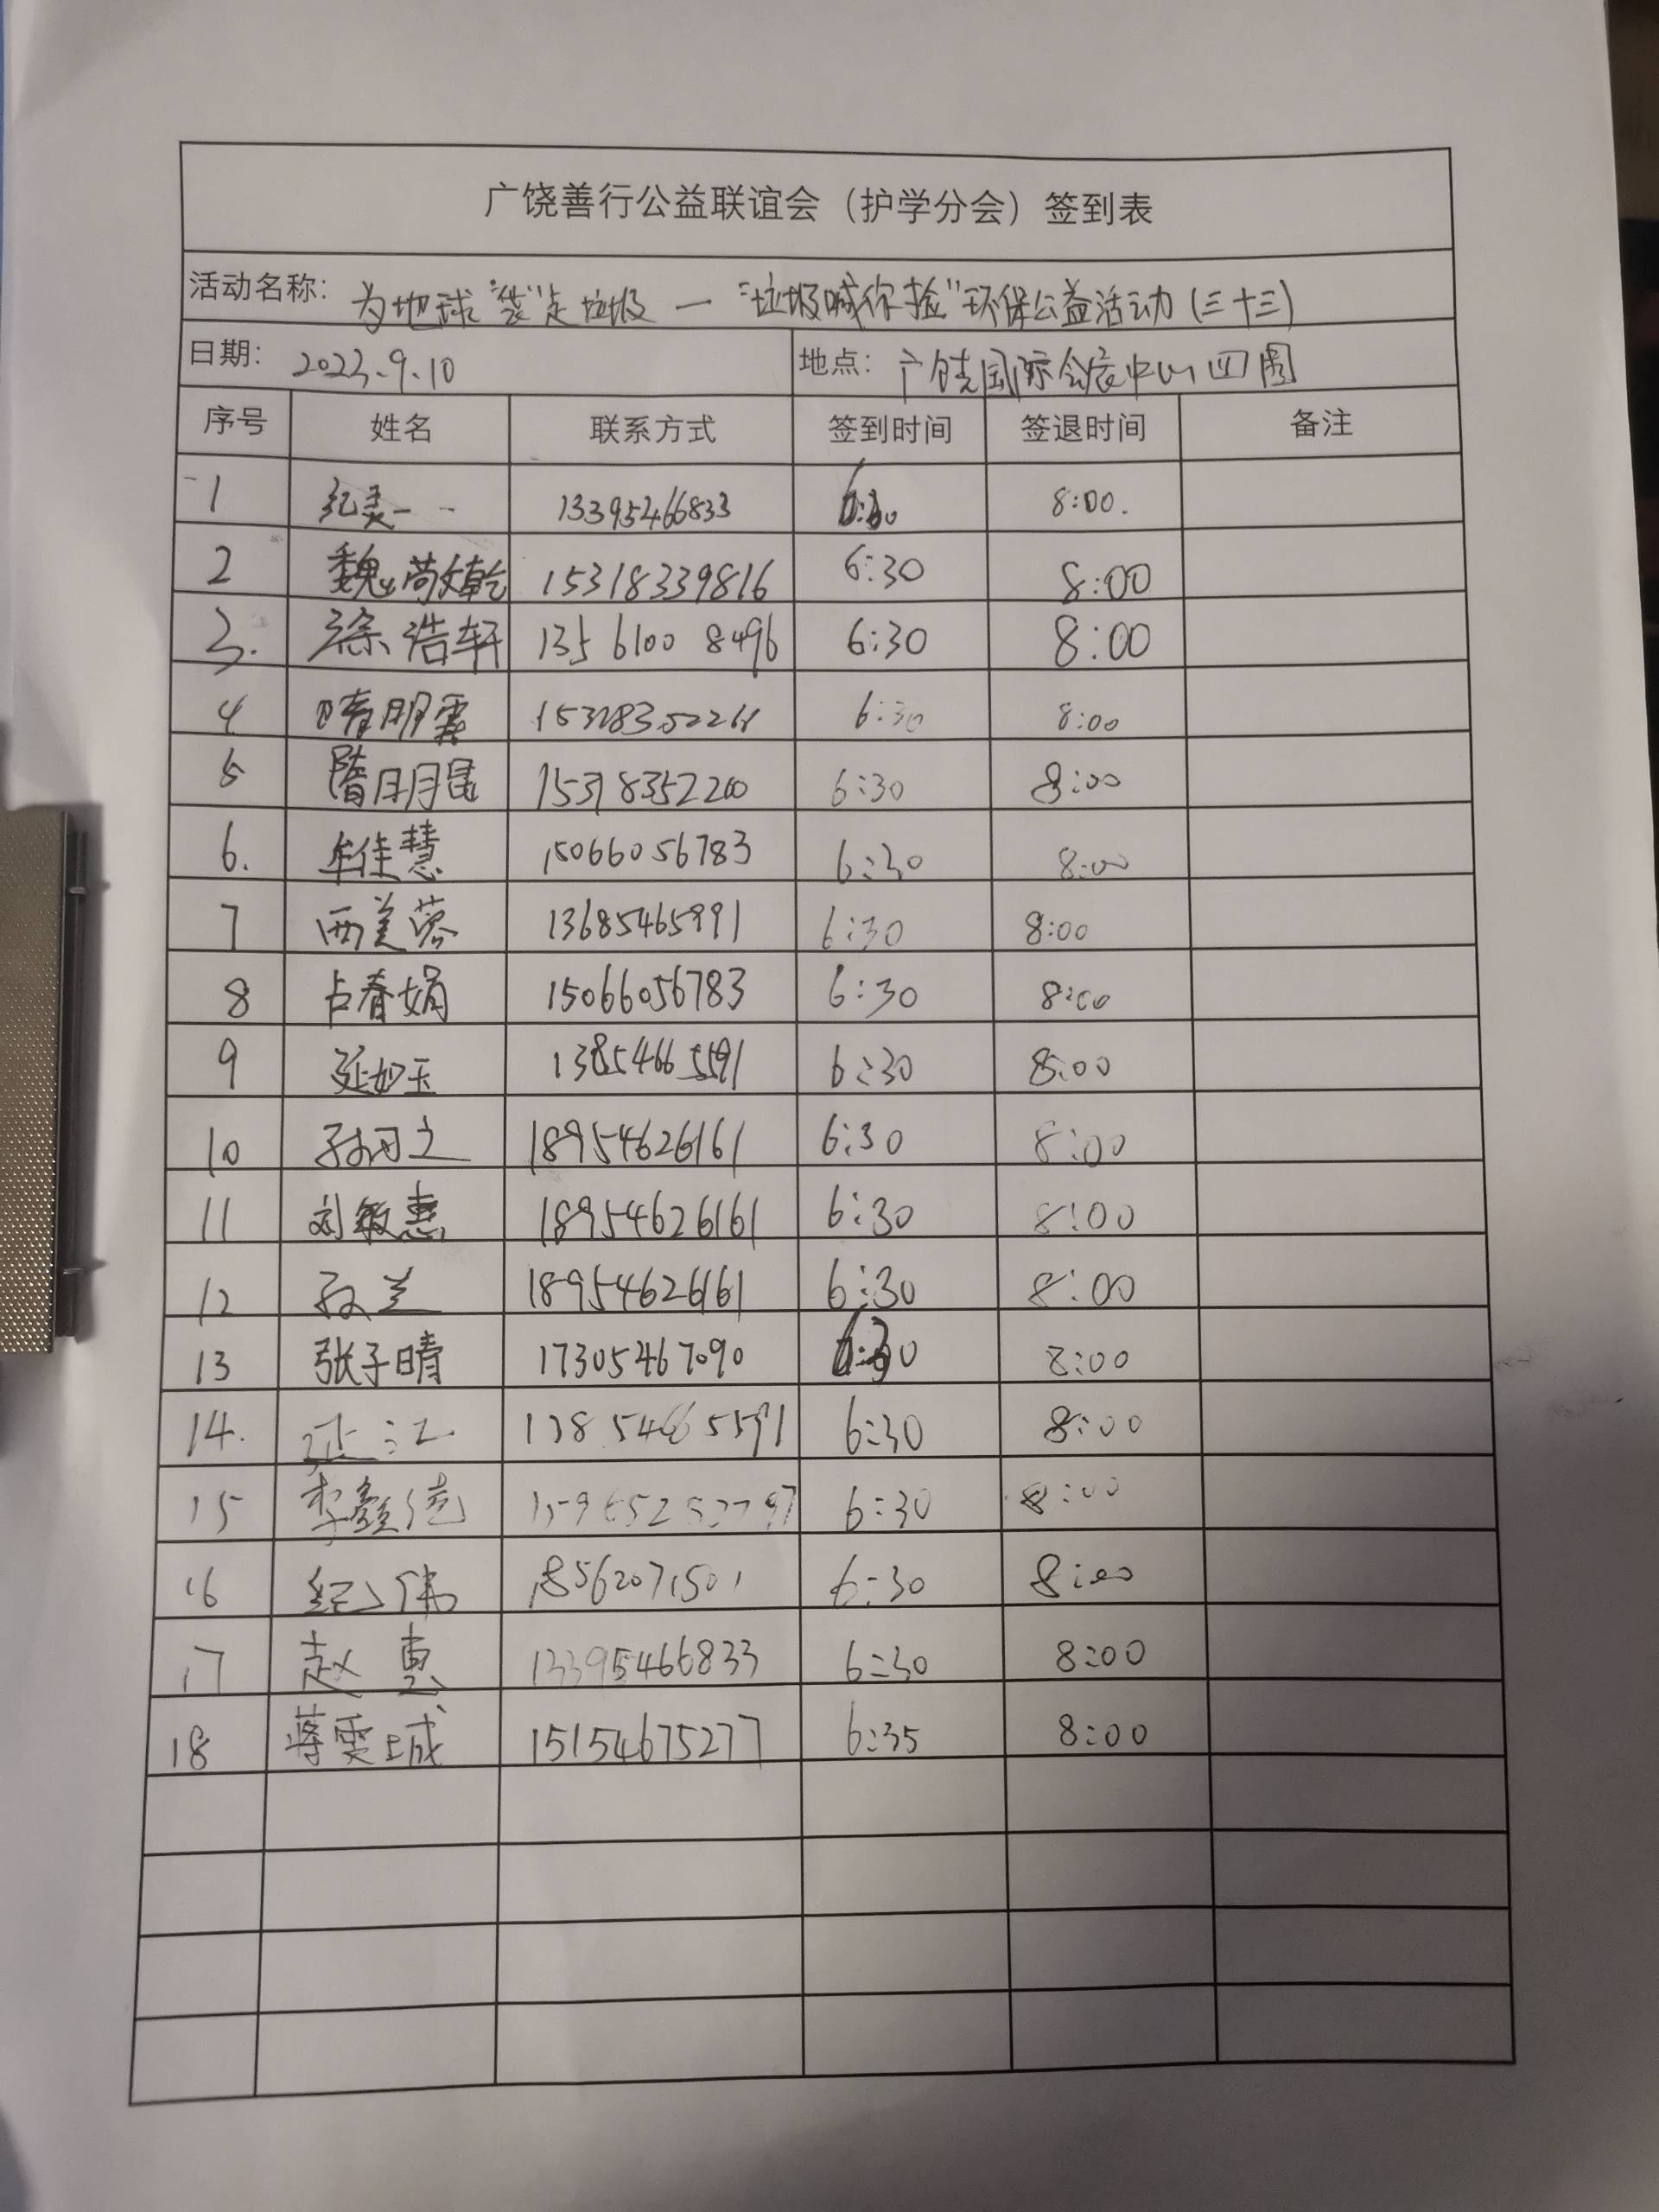 广饶善行公益联谊会（护学分会）签到表
活动名称： 为地球"袋"走垃圾一"垃圾喊你捡"环保公益活动(三十三)
日期： 2023.9.10 地点： 广饶国际会展中心四周
序号 姓名 联系方式 签到时间 签退时间 备注
1 13395466833 6:30 8:00.
2 魏尚乾 15318339816 6:30 8:00
3. 徐浩轩 135 6100 8496 6:30 8:00
4 6:30 8:00
5 隋明昆 15318352260 6:30 8:00
6. 牟佳慧 15066056783 6:30 8:00
7 西美蓉 13685465991 6:30 8:00
8 占春娟 15066056783 6:30 8:00
9 延如玉 13854665591 6:30 8:00
10 18954626161 6:30 8:00
11 刘敏惠 18954626161 6:30 8:00
12 孙兰 18954626161 6:30 8:00
13 张子晴 17305467090 6:30 8:00
14. 延江 138 5466 5591 6:30 8:00
15 6:30 8:00
16 纪伟 18562071501 6:30 8:00
17 赵惠 13395466833 6:30 8:00
18 蒋雯城 15154675277 6:35 8:00